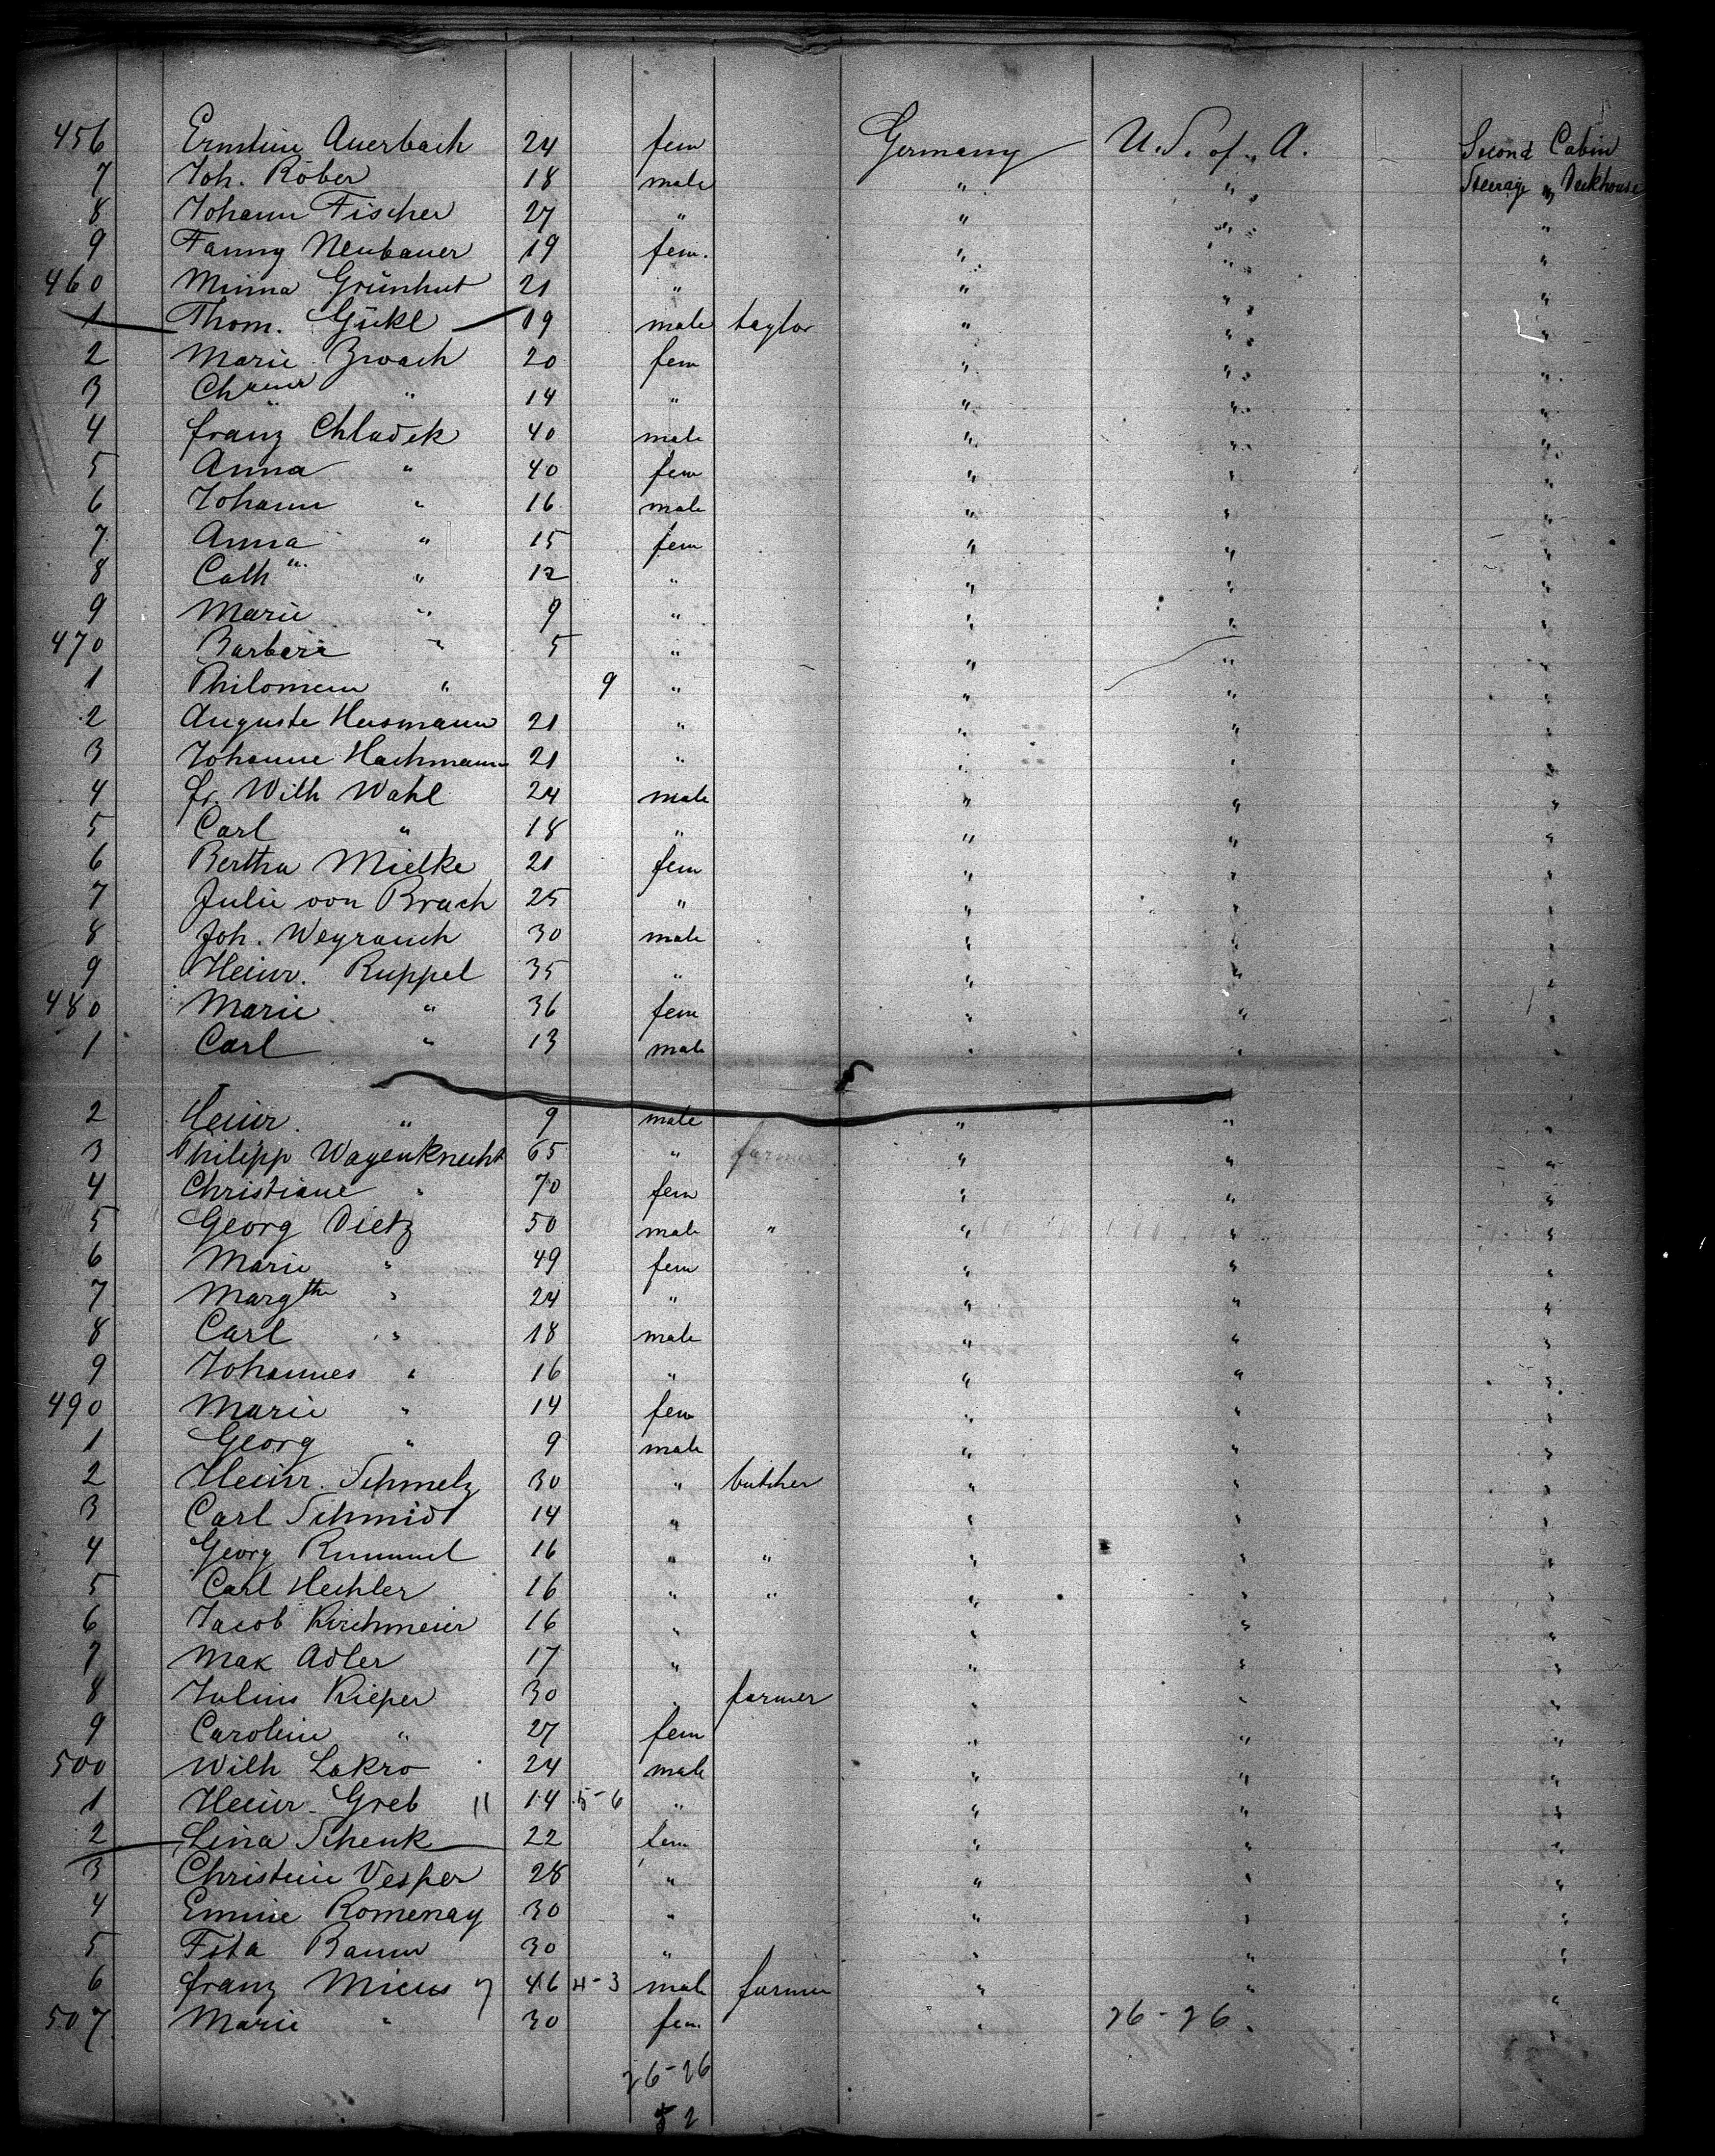 456 Ernstine Auerbach 24 fem Germany U.S. of A. Second Cabin
7 Joh. Röber 18 male " " Steerage " Deckhouse
8 Johann Fischer 27 " " " "
9 Fanny Neubauer 19 fem. " " "
460 Minna Grünhut 21 " " " "
1 Thom. Gükl 19 male taylor " " "
2 Marie Zwoach 20 fem " " "
3 " 14 " " " "
4 Franz Chladek 40 male " " "
5 Anna " 40 fem " " "
6 Johann " 16 male " " "
7 Anna " 15 fem " " "
8 Cath " 12 " " " "
9 Marie " 9 " " " "
470 Barbara " 5 " " " "
1 Philomen " 9 " " " "
2 Auguste Husmann 21 " " " "
3 Johanne Hachmann 21 " " " "
4 Fr. Wilh Wahl 24 male " " "
5 Carl " 18 " " " "
6 Bertha Mielke 21 fem " " "
7 Julie von Brach 25 " " " "
8 Joh. Weyrauch 30 male " " "
9 Heinr. Ruppel 35 " " " "
480 Marie " 36 fem " " "
1 Carl " 13 male " " "
2 Heinr. " 9 male " " "
3 Philipp Wagenknecht 65 " farmer " " "
4 Christiane " 70 fem " " "
5 Georg Dietz 50 male " " " "
6 Marie " 49 fem " " "
7 Margth " 24 " " " "
8 Carl " 18 male " " "
9 Johannes " 16 " " " "
490 Marie " 14 fem " " "
1 Georg " 9 male " " "
2 Heinr. Schmelz 30 " butcher " " "
3 Carl Schmidt 14 " " " "
4 Georg Rummel 16 " " " " "
5 Carl Hechler 16 " " " " "
6 Jacob Kirchmeier 16 " " " "
7 Max Adler 17 " " " "
8 Julius Rieper 30 " farmer " " "
9 Caroline " 27 fem " " "
500 Wilh Lakro 24 male " " "
1 Heinr. Greb 11 14 5-6 " " " "
2 Lina Schenk 22 fem " " "
3 Christine Vesper 28 " " " "
4 Emmie Romenay 30 " " " "
5 Baum 30 " " " "
6 Franz Micus 7 46 4-3 male farmer " " "
507 Marie " 30 fem " 26-26 " "
26-26
52